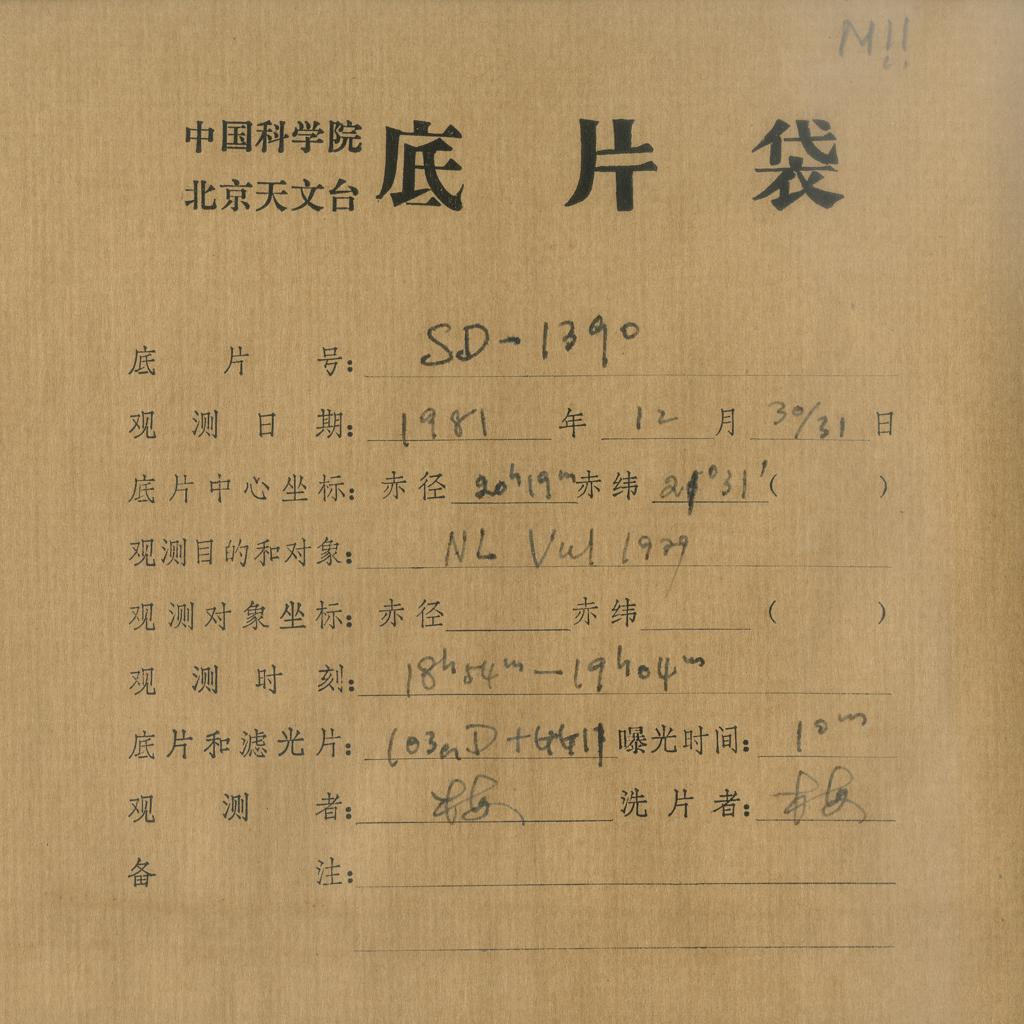 M!!
中国科学院
北京天文台
底片袋
底片号: SD-1390
观测日期: 1981年12月30/31日
底片中心坐标: 赤径 20h19m 赤纬 21°31′( )
观测目的和对象: NL Vul 1979
观测对象坐标: 赤径 赤纬 ( )
观测时刻: 18h54m—19h04m
底片和滤光片: (03aD+GG11 曝光时间: 10m
观测者: 梅 洗片者: 梅
备注: